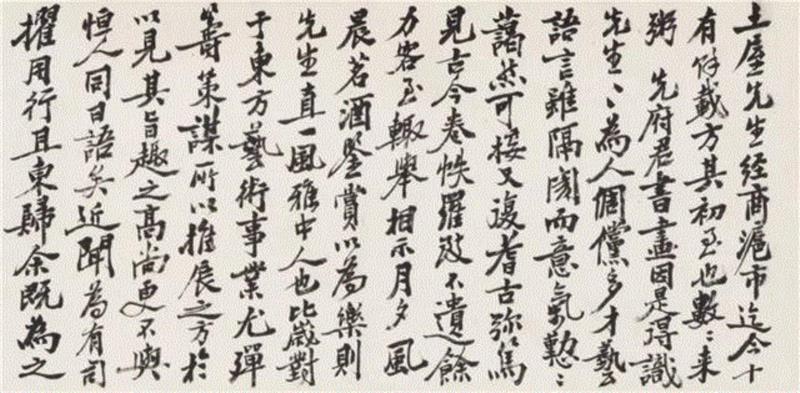 土屋先生經商滬市迄今十
有餘載方其初至也數〻來
粥先府君書畫因是得識
先生〻為人倜儻多才藝
語言雖隔閡而意氣懃〻
藹然可接又復耆古弥篤
見古今卷帙羅致不遺餘
力客至輒舉相示月夕風
晨茗酒鑒賞以為樂則
先生直一風雅中人也比歲對
于東方藝術事業尤殫
籌策謀所以推展之方於
以見其旨趣之高尚更不與
恒人同日語矣近聞為有司
擢用行且東歸余既為之